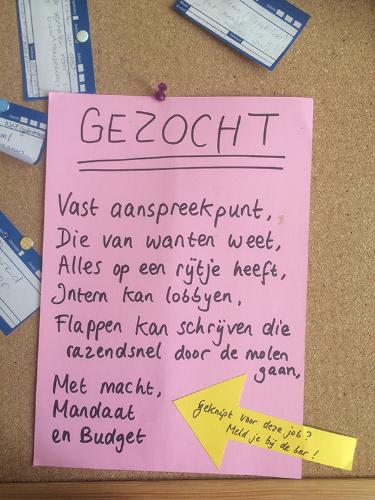 GEZOCHT
Vast aanspreekpunt,
Die van wanten weet,
Alles op een rijtje heeft,
Intern kan lobbyen,
Flappen kan schrijven die
razendsnel door de molen
gaan,
Met macht,
Mandaat
en Budget
Geknipt voor deze job?
Meld je bij de bar!